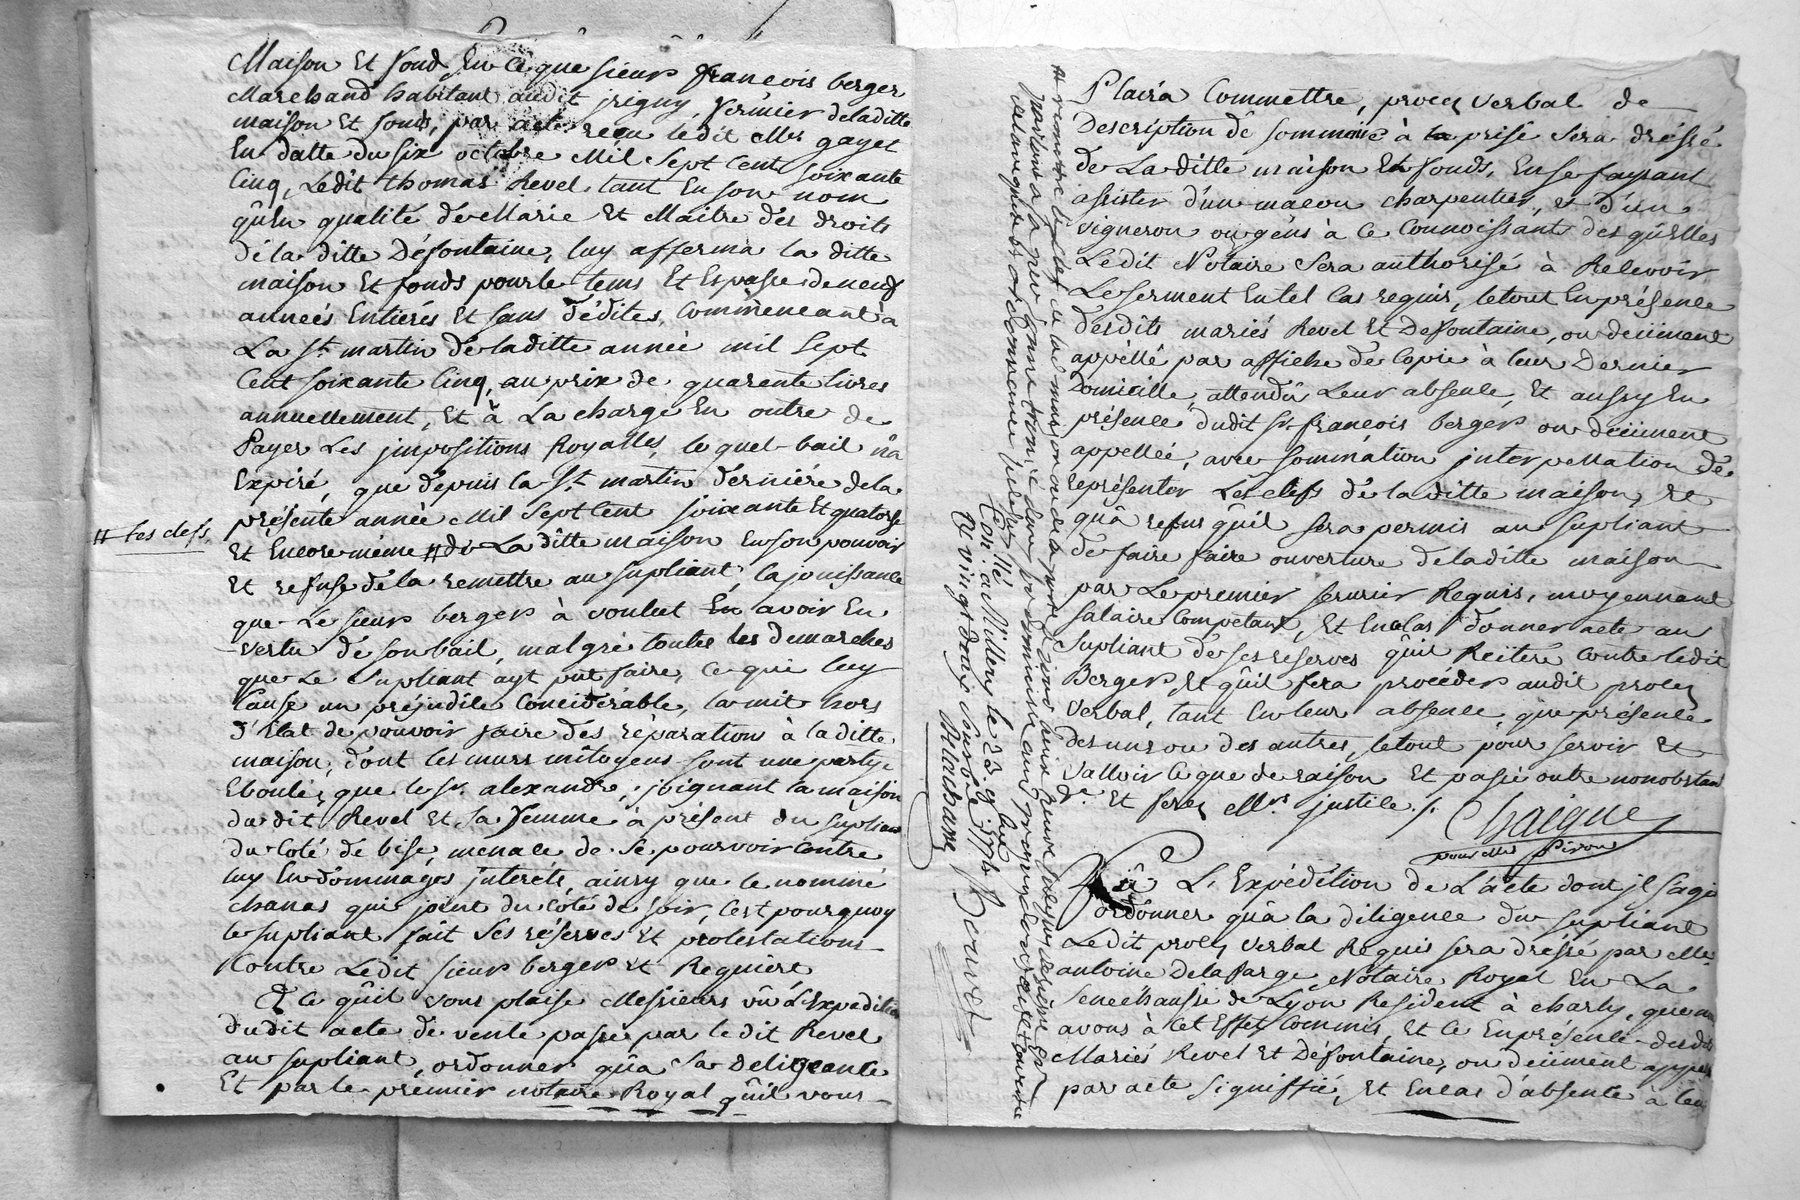 Maison Et fond En ce que sieur francois berger
Marchand habitant audit jrigny, fermier de laditte
maison Et fonds, par acte recu ledit Me gayet
En datte du six octobre Mil Sept Cent soixante
Cinq, Ledit thomas Revel tant En son nom
qu'En qualité de Marie Et Maitre des droits
de la ditte Défontaine, luy afferma la ditte
maison Et fonds pour le tems Et Espasse de neuf
anneés Entierés Et sans d'édites, Commenceant à
La St martin de laditte année mil Sept
Cent soixante Cinq, au prix de quarente livres
annuellement, Et à La charge En outre de
Payer Les jmpositions Royalles, le quel bail n'a
Expiré, que depuis la St martin derniére de la
présente année Mil Sept Cent soixante Et quatorse
# Les clefs.
Et Encore même # de La ditte maison En son pouvoir
Et refuse de la remettre au supliant, la jouissance
que Le sieur berger à voulut En avoir En
vertu de son bail, malgré toutes les demarches
que Le Supliant ayt put faire, Ce qui luy
Cause un préjudice Considérable, la mit hors
d'Etat de pouvoir faire des réparations à la ditte
maison, dont les murs mitoyens sont une party
Eboulé, que le Sr. alexandre, joignant la maison
du dit Revel Et sa femme à présent du supliant
du Coté de bise, menace de se pourvoir Contre
luy En dommages jnterets, ainsy que le nommé
chanas qui joint du Coté de soir, C'est pourquoy
le supliant fait Ses réserves Et protestations
Contre Ledit sieur berger Et Requiert
A Ce qu'il vous plaise Messieurs vû L'Expedition
dudit acte de vente passé par le dit Revel
au supliant, ordonner qu'a Sa Deligeance
Et par le premier notaire Royal qu'il vous
Plaira Commettre, procès verbal de
Description de sommaire à la prisé Sera dréssé
de La ditte maison Et fonds, En se faysant
assister d'un macon charpentier, et d'un
vigneron ou gens à Ce Connoissant des quelles
Ledit Notaire Sera authorisé à Recevoir
Le serment En tel Cas requis, le tout En présence
desdits mariés Revel Et Defontaine, ou deüement
appéllé par affiche de Copie à leur Dernier
Domicille, attendû Leur absence, Et aussy En
présence dudit Sr. francois berger ou deüement
appelleé, avec sommation jnterpellation de
représenter Les clefs de la ditte maison, Et
qu'à refus qu'il sera permis au supliant
de faire faire ouverture de laditte maison
par Le premier serurier Requis, moyennant
salaire Compétant, Et En Cas donner acte au
Supliant de ses réserves qu'il Réïtere Contre ledit
Berger, Et qu'il fera procéder audit procès
verbal, tant En leur absence, que présence
des uns ou des autres, le tout pour servir Et
valloir Ce que de raison Et passé outre nonobstant
Et ferez Mrs justice ./.
Chaigne
pour Me Pirron
Vû L'Expédition de L'acte dont jl s'agit
ordonner qu'à la diligence du supliant
Ledit procès verbal Requis sera dressé par Me
antoine Delafarge Notaire Royal En La
Sénéchaussé de Lyon Résident à charly, que nous
avons à Cet Effet Commis, Et Ce En présence desdits
Mariés Revel Et Défontaine, ou deüement appellé
par acte signiffié, Et En Cas d'absence à leur